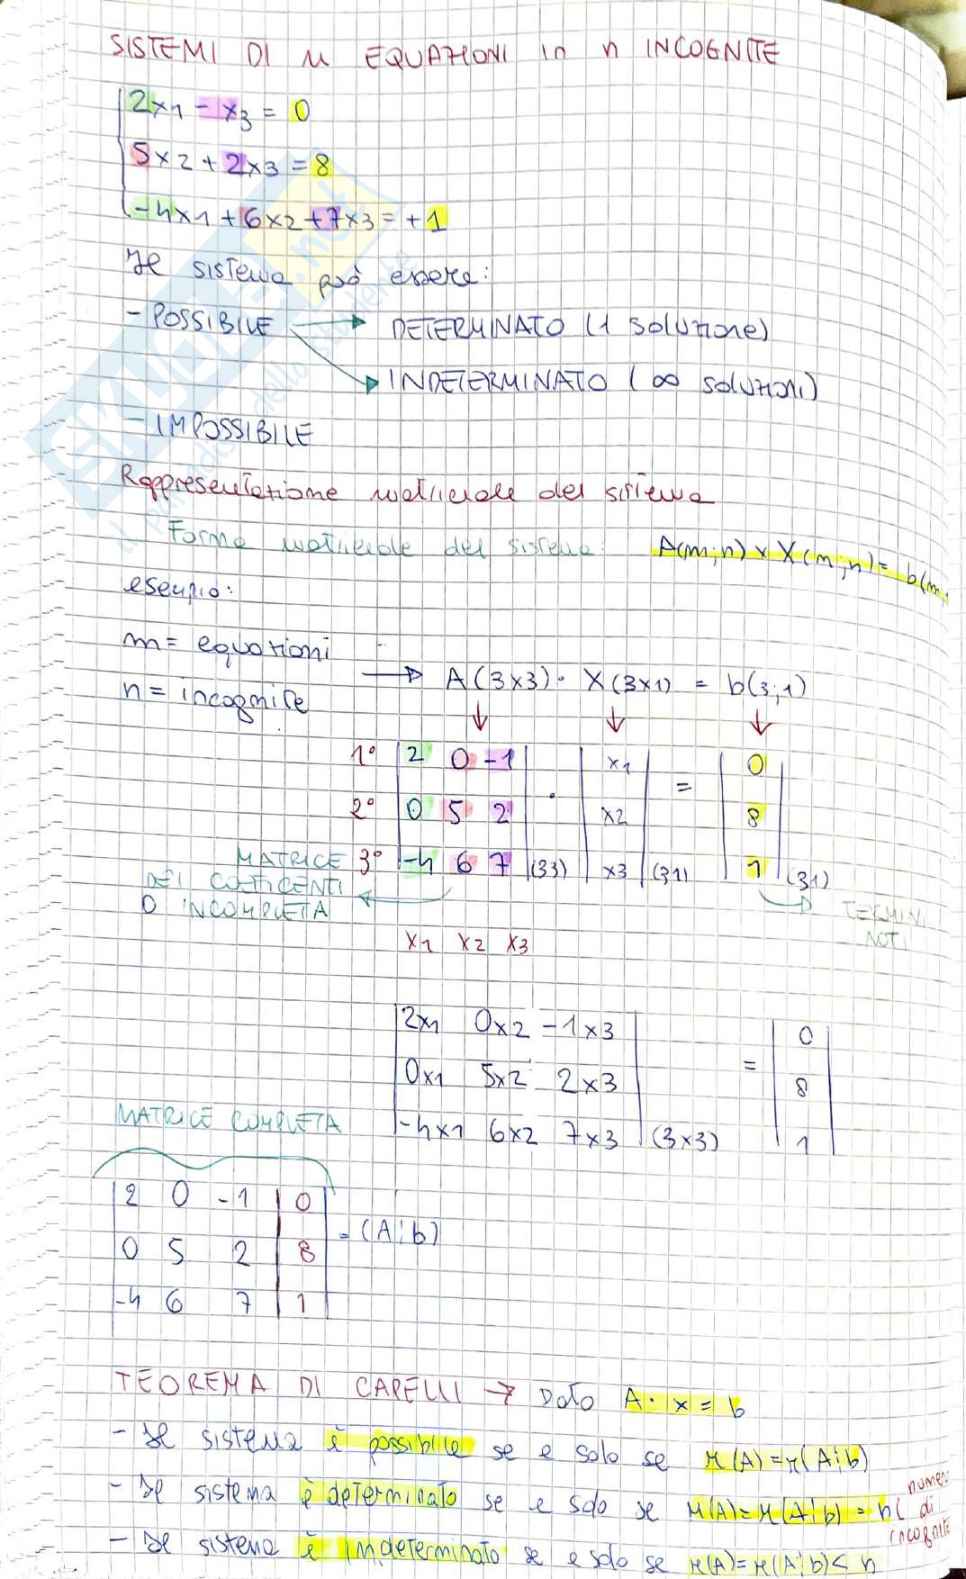 SISTEMI DI m EQUAZIONI in n INCOGNITE
2x1 - x3 = 0
5x2 + 2x3 = 8
-4x1 + 6x2 + 7x3 = + 1
Il sistema può essere:
- POSSIBILE → DETERMINATO (1 soluzione)
→ INDETERMINATO (∞ soluzioni)
- IMPOSSIBILE
Rappresentazione matriciale del sistema
Forma matriciale del sistema: A(m;n) x X(m;n) = b(m;
esempio:
m = equazioni
→ A(3x3) · X(3x1) = b(3;1)
n = incognite
↓ ↓ ↓
1° 2 0 -1 x1 = 0
2° 0 5 2 · x2 8
MATRICE 3° -4 6 7 (33) x3 (31) 1 (31)
DEI COEFFICENTI
O INCOMPLETA
TERMINI
NOTI
x1 x2 x3
2x1 0x2 -1x3 0
0x1 5x2 2x3 = 8
-4x1 6x2 7x3 (3x3) 1
MATRICE COMPLETA
2 0 -1 | 0
0 5 2 | 8 = (A¦b)
-4 6 7 | 1
TEOREMA DI CAPELLI → Dato A · x = b
- Il sistema è possibile se e solo se r(A)=r(A¦b)
- Il sistema è determinato se e solo se r(A)=r(A¦b) = n (numero di incognite
- Il sistema è indeterminato se e solo se r(A)=r(A¦b) < n